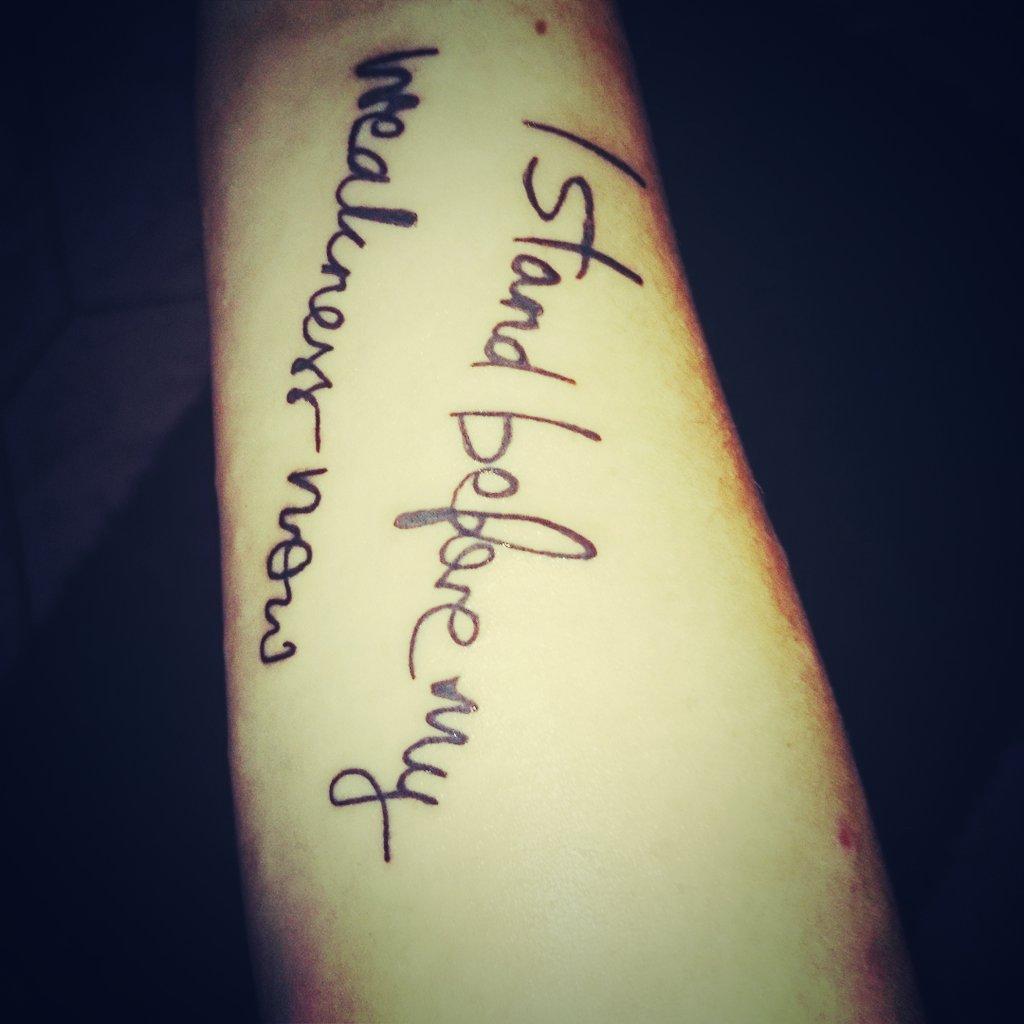 I stand before my
weakness now